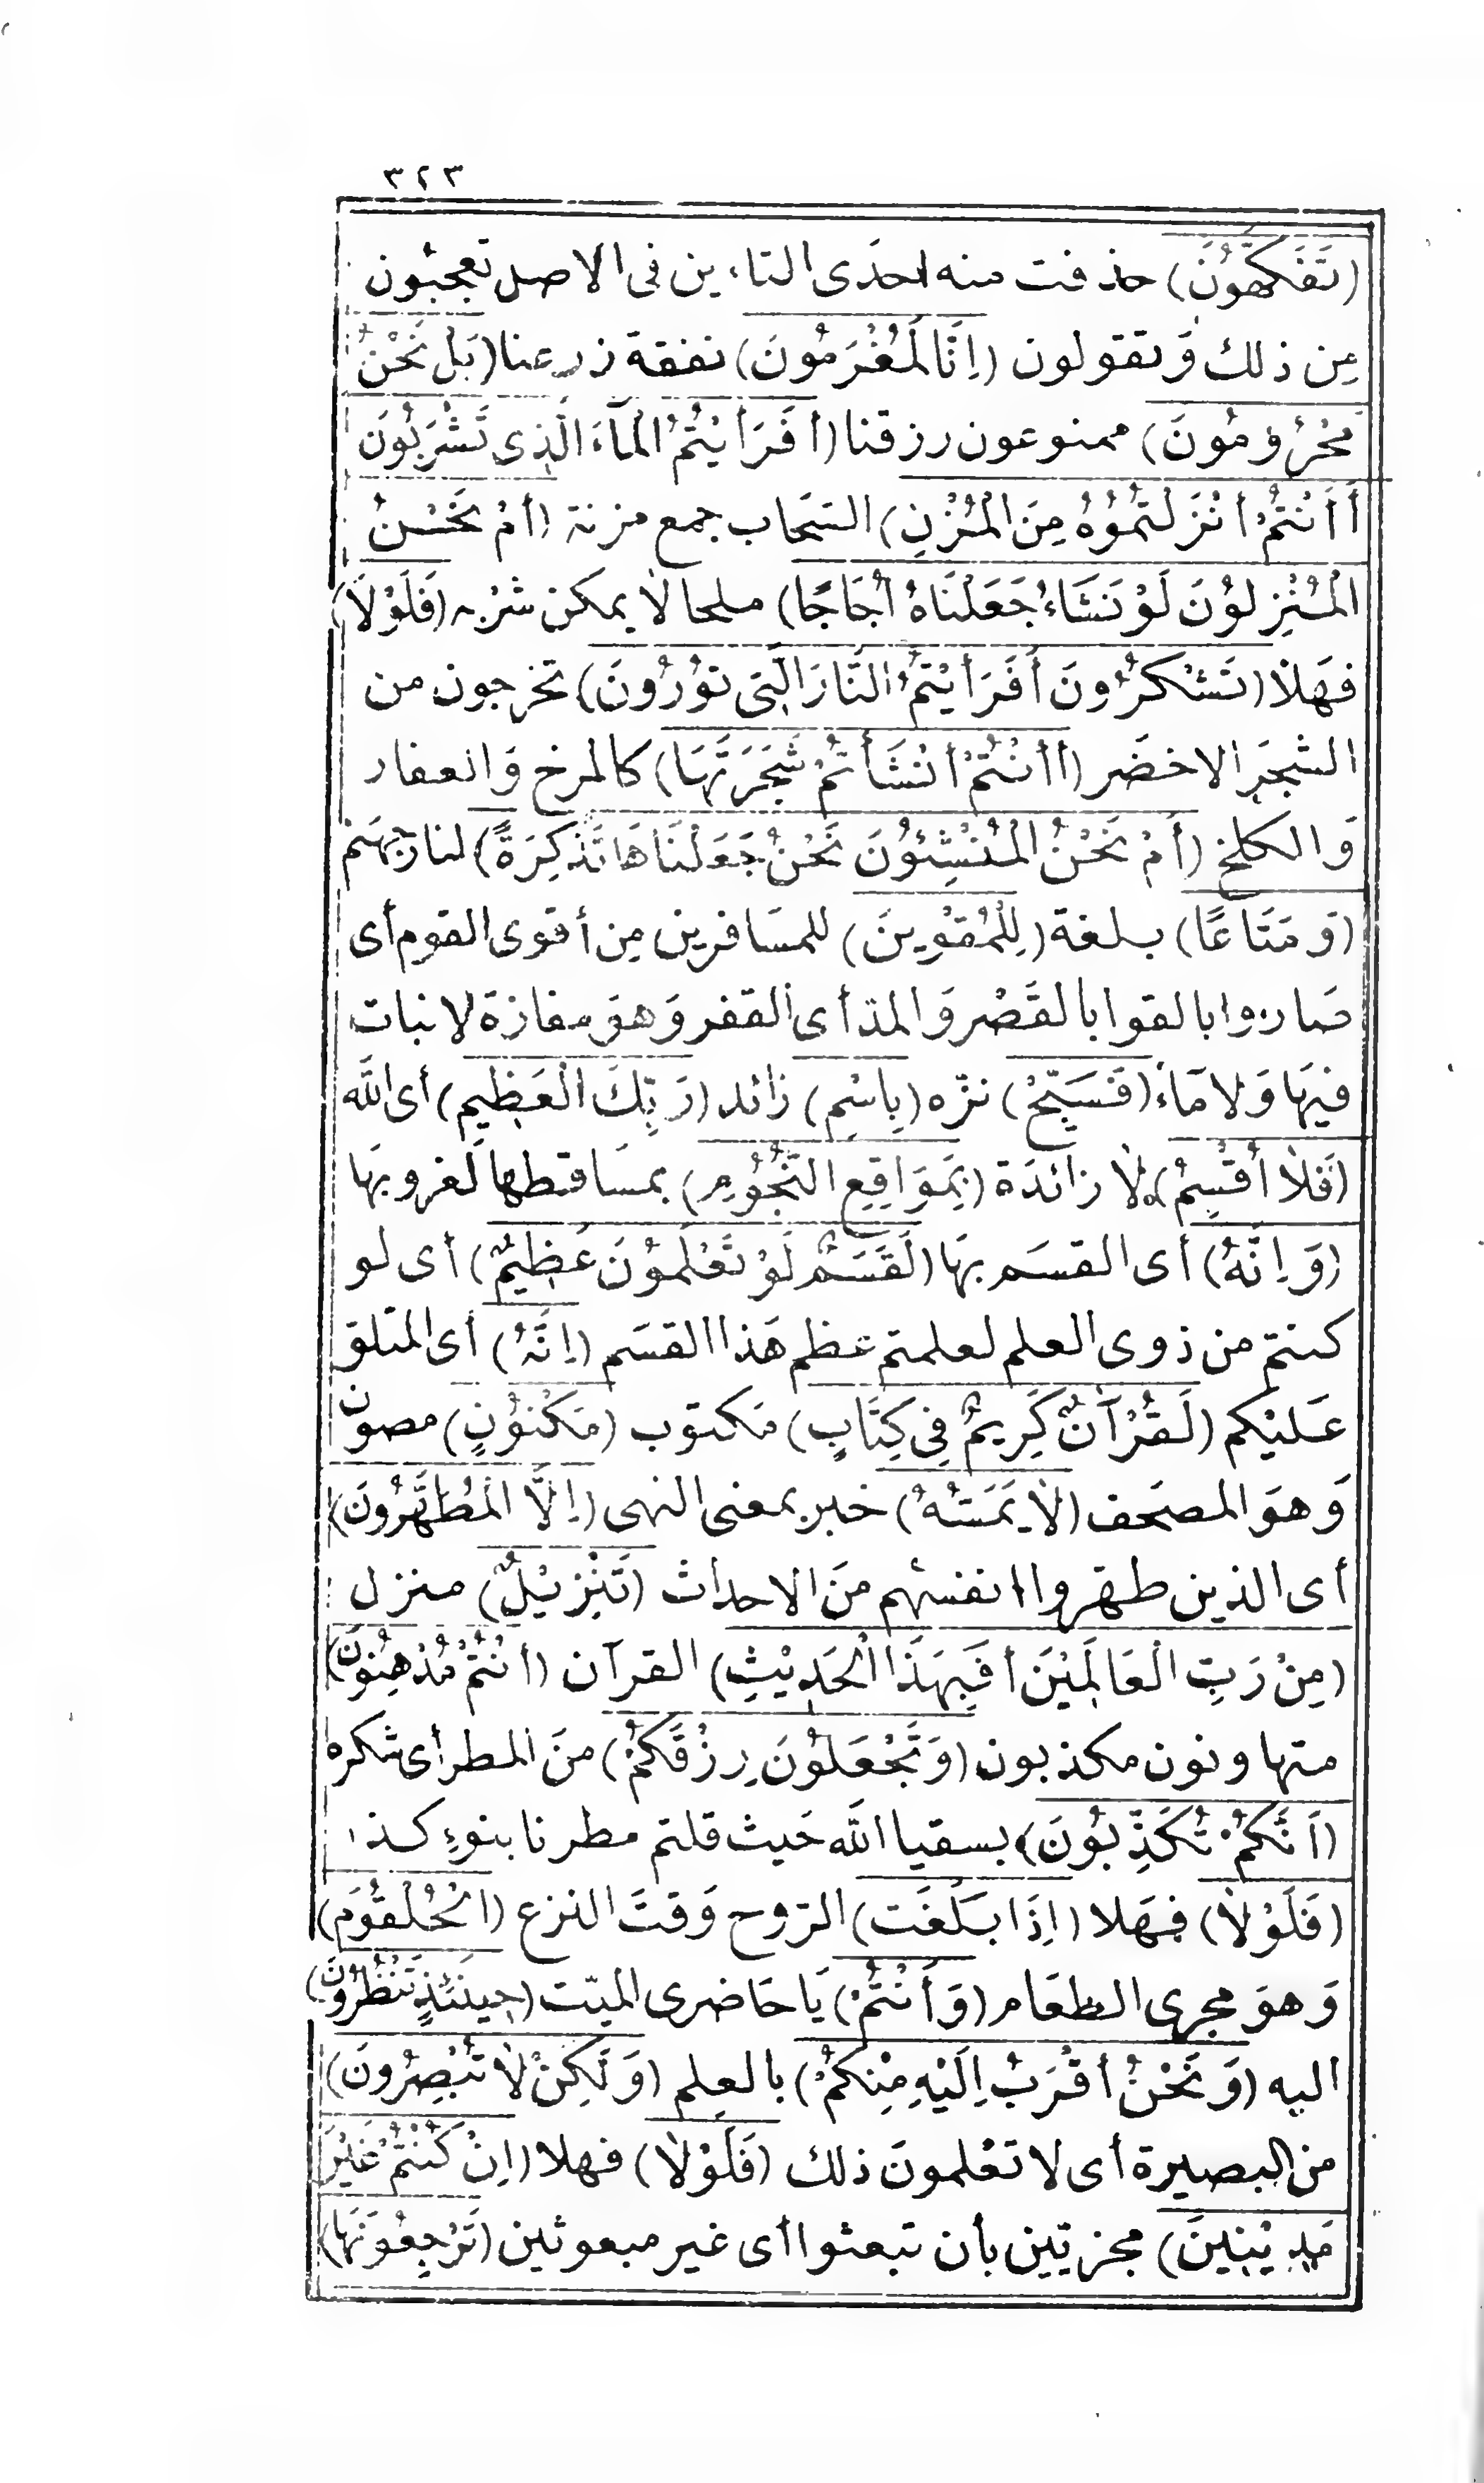 ٣٢٣
(تَفَكَّهُونَ) حذفت منه احدَى التاءين فى الاصل تعجبُون
مِن ذلك وَتقولون (اِنَّا لَمُغْرَمُونَ) نفقة زرعنا (بَل نَحْنُ
مَحْرُومُونَ) ممنوعون رزقنا (أفَرَأيْتُمُ الْمَآءَ الَّذِى تَشْرَبُونَ
أَأَنْتُمْ أنْزَلْتُمُوُهُ مِنَ الْمُزْنِ) السّحَاب جمع مزنة (أمْ نَحْنُ
الْمُنْزِلوُنَ لَوْ نَشَاءُ جَعَلْنَاهُ أُجَاجًا) ملحا لا يمكن شرْبه (فَلَوْلَا)
فهَلا (تَشْكُرُونَ أَفَرَأيْتُمُ النَّارَ الَّتِى تُوُرُونَ) تخرجون من
الشجَرِ الاخضَر (أأنْتُمْ أنْشَأتُمْ شَجَرَتَهَا) كالمرخ وَالعفار
وَالكلخ (أَمْ نَحْنُ الْمُنْشِئوُنَ نَحْنُ جَعَلْنَاهَا تَذْكِرَةً) لنار جهنم
(وَمَتَاعًا) بلغة (لِلْمُقْوِينَ) للمسَافرين مِن أقوى القوم أى
صَاروا بالقوا بالقَصْر وَالمدّ أى القفر وَهوَ مفازة لا نبات
فيهَا وَلا مَاءَ (فَسَبِّحْ) نزّه (بِاسْمِ) زائد (رَبِّكَ الْعَظِيمِ) أى الله
(فَلَا أُقْسِمُ) لا زائدَة (بِمَوَاقِعِ النُّجُوُمِ) بمسَاقطها لغروبهَا
(وَاِنَّهُ) أى القسَم بهَا (لَقَسَمٌ لَوْ تَعْلَموُنَ عَظِيمٌ) أى لو
كنتم من ذوى العلم لعلمتم عظم هَذا القسَم (اِنَّهُ) أى المتلو
عَليْكم (لَقُرْآنٌ كَرِيمٌ فِى كِتَابٍ) مَكتوب (مَكْنوُنٍ) مصون
وَهوَ المصحَف (لَا يَمَسُّهُ) خبر بمعنى النهى (اِلَّا الْمُطَهَّرُونَ)
أى الذين طهّروا انفسهم منَ الاحداث (تَنْزِيْلٌ) منزل
(مِنْ رَبِّ الْعَالَمِيْنَ أفَبِهَذَا الْحَدِيْثِ) القرآن (أنْتُمْ مُدْهِنُونَ)
متهاونون مكذبون (وَتَجْعَلوُنَ رِزْقَكُمْ) منَ المطر أى شكره
(اَنَّكُمْ تُكَذِّبُونَ) بسقيا الله حَيث قلتم مطرنا بنوءِ كذا
(فَلَوْلَا) فهَلا (اِذَا بَلَغَت) الرّوح وَقتَ النزع (الْحُلْقُوَم)
وَهوَ مجرى الطعَام (وَأَنْتُمْ) يَا حَاضرى الميّت (حِينَئِذٍ تَنْظُرُونَ)
اليه (وَنَحْنُ أقْرَبُ اِلَيْهِ مِنْكُمْ) بالعِلم (وَلَكِنْ لَا تُبْصِرُونَ)
من البصيرة أى لا تعْلمونَ ذلك (فَلَوْلَا) فهلا (اِنْ كُنْتُمْ غَيْرَ
مَدِيْنِينَ) مجزيّين بأن تبعثوا أى غير مبعوثين (تَرْجِعُونَهَا)